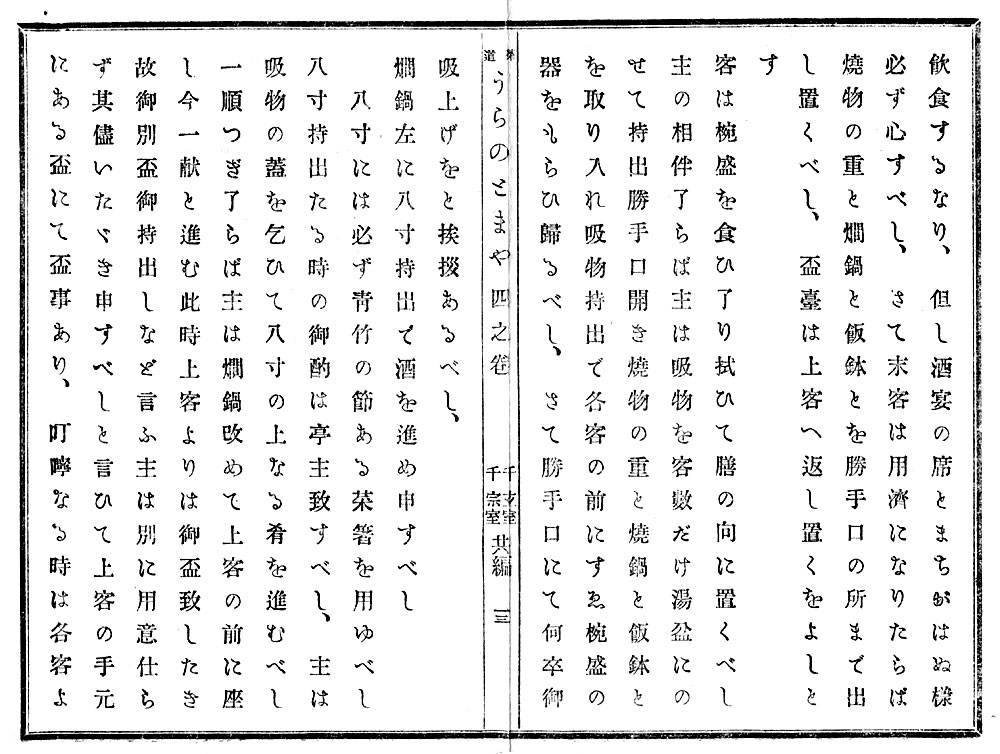 飲食するなり、但し酒宴の席とまちがはぬ樣
必ず心すべし、さて末客は用濟になりたらば
燒物の重と燗鍋と飯鉢とを勝手口の所まで出
し置くべし、盃臺は上客へ返し置くをよしと
す
客は椀盛を食ひ了り拭ひて膳の向に置くべし
主の相伴了らば主は吸物を客數だけ湯盆にの
せて持出勝手口開き燒物の重と燒鍋と飯鉢と
を取り入れ吸物持出で各客の前にすゑ椀盛の
器をもらひ歸るべし、さて勝手口にて何卒御
茶道 うらのとまや 四之卷 千玄室 千宗室 共編 三
吸上げをと挨拶あるべし、
燗鍋左に八寸持出で酒を進め申すべし
八寸には必ず靑竹の節ある菜箸を用ゆべし
八寸持出たる時の御酌は亭主致すべし、主は
吸物の蓋を乞ひて八寸の上なる肴を進むべし
一順つぎ了らば主は燗鍋改めて上客の前に座
し今一献と進む此時上客よりは御盃致したき
故御別盃御持出しなど言ふ主は別に用意仕ら
ず其儘いたゞき申すべしと言ひて上客の手元
にある盃にて盃事あり、叮嚀なる時は各客よ